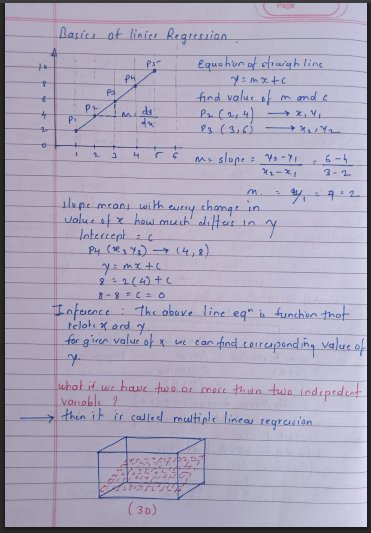 Page
Basics of linier Regression.
Equation of straigh line
y = mx + c
find value of m and c
P2 (2, 4) → x1, y1
P3 (3, 6) → x2, y2
10
8
6
4
2
0
1 2 3 4 5 6
P1
P2
P3
P4
P5
m = dy/dx
m = slope = y2 - y1 / x2 - x1 = 6 - 4 / 3 - 2
m = 2/1 = 2
slope means with every change in
value of x how much differs in y
Intercept = c
P4 (x3, y3) → (4, 8)
y = mx + c
8 = 2(4) + c
8 - 8 = c = 0
Inference : The above line eqn is function that
relate x and y.
for given value of x we can find corresponding value of
y.
what if we have two or more than two indepedent
variable ?
→ then it is called multiple linear regression
(3D)